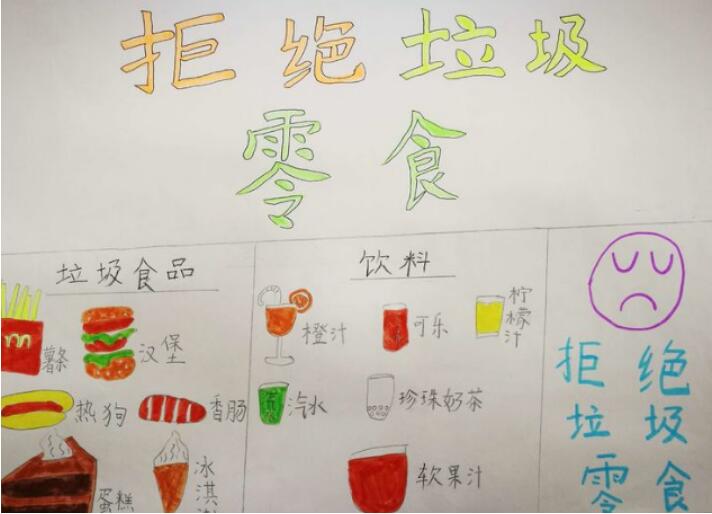 拒绝垃圾
零食
垃圾食品
薯条
汉堡
热狗
香肠
蛋糕
冰淇
饮料
橙汁
可乐
柠檬汁
汽水
珍珠奶茶
软果汁
拒绝
垃圾
零食